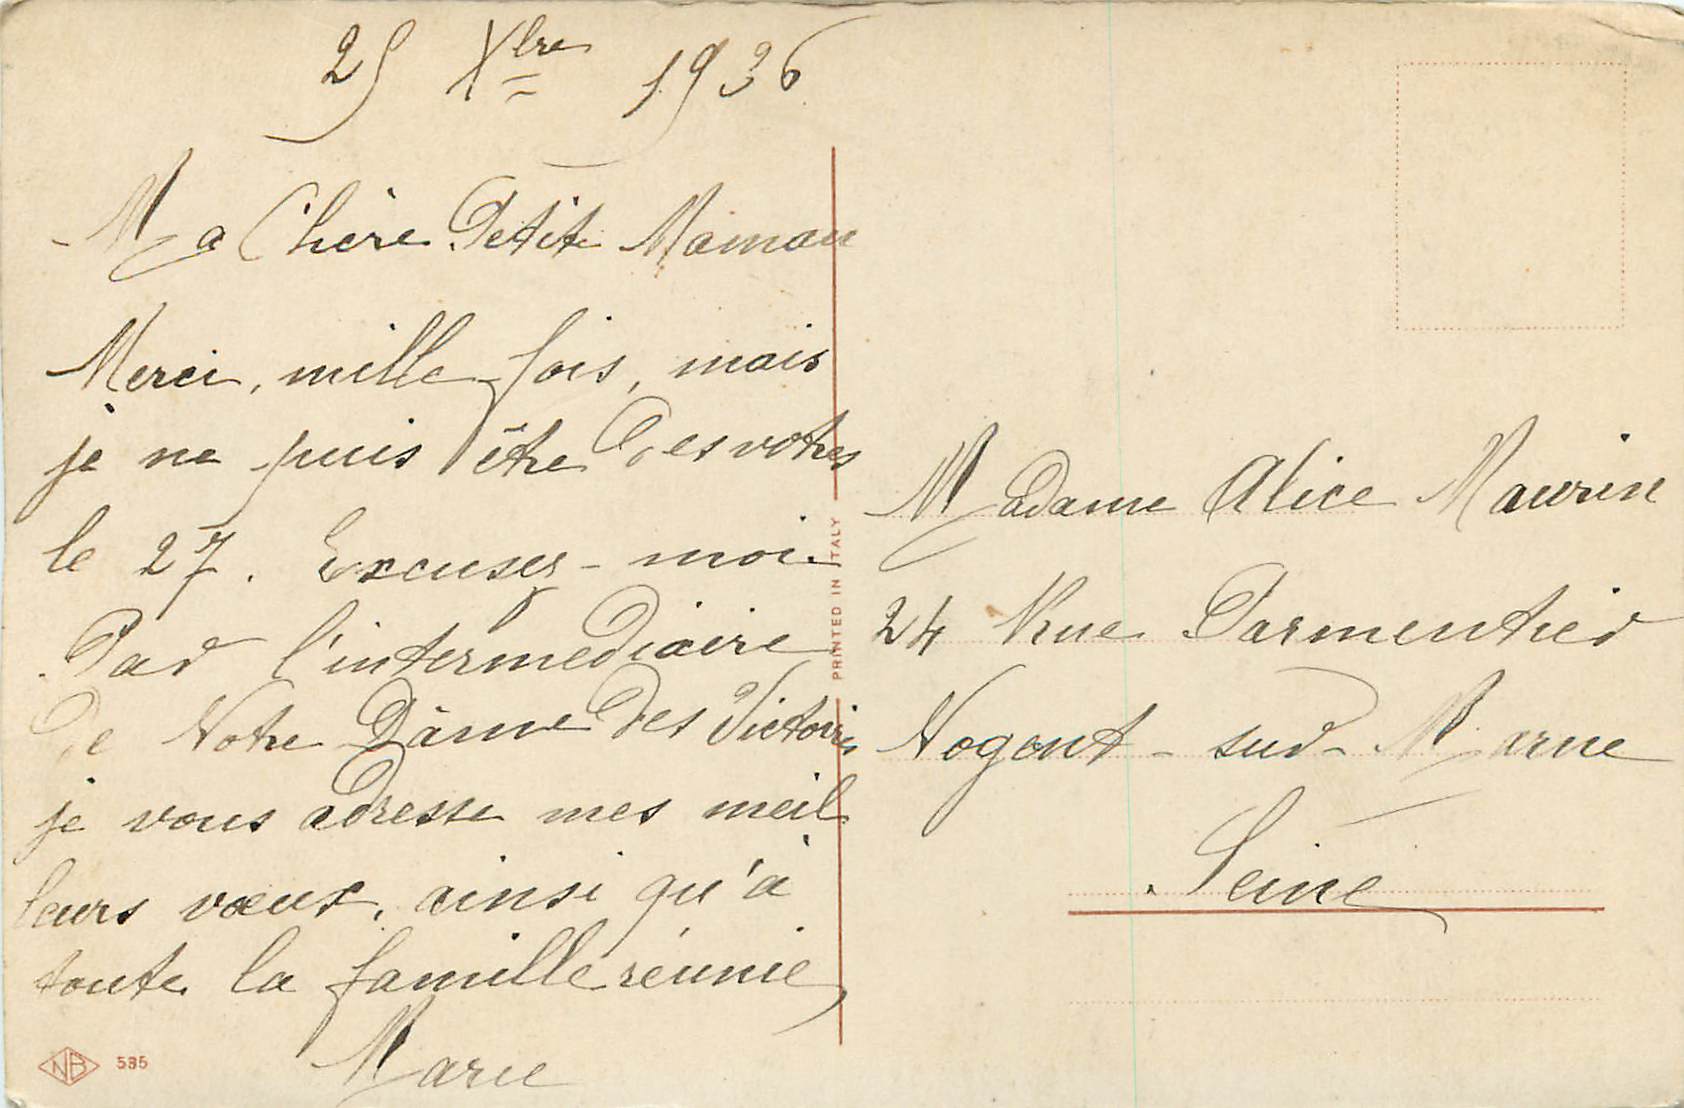 25 Xbre 1936
Ma Chère Petite Maman
Merci, mille fois, mais
je ne puis être des votres
le 27. Excusez-moi.
Par l'intermediaire
de Notre Dâme des Victoires
je vous adresse mes meil
leurs vœux, ainsi qu'à
toute la famille réunie,
Marie
NB 535
PRINTED IN ITALY
Madame Alice Maurin
24 Rue Parmentier
Nogent-sur-Marne
Seine